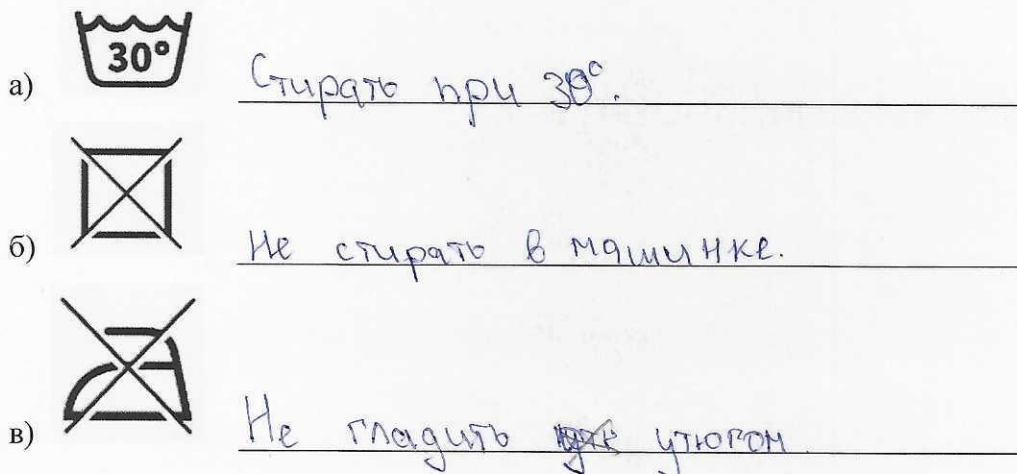 30°
а) Стирать при 30°.
б) Не стирать в машинке.
в) Не гладить утюгом.